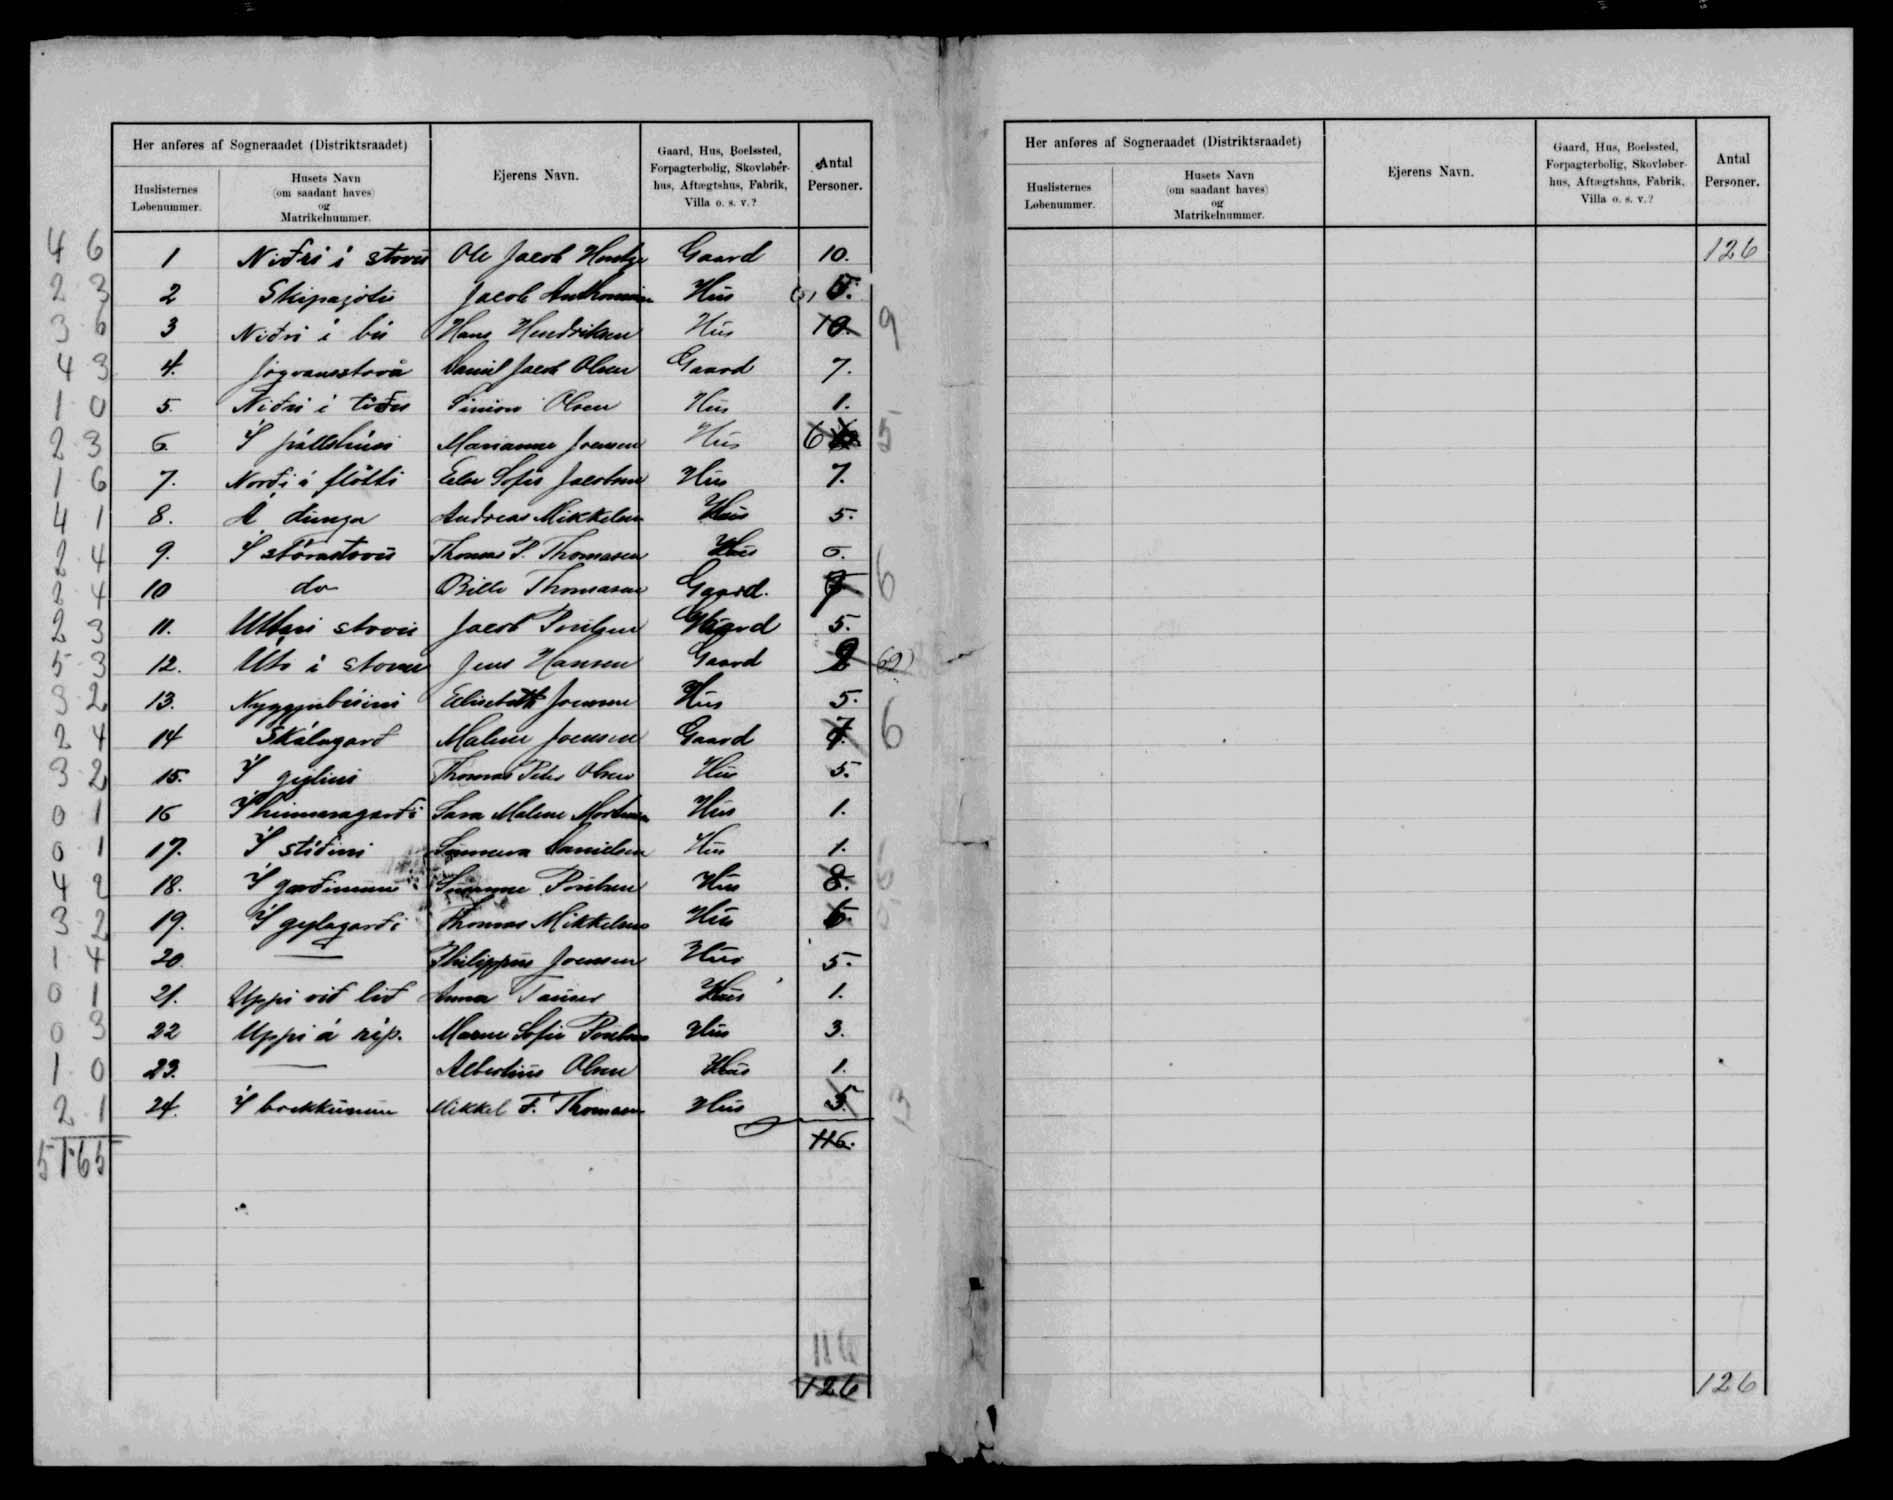 Her anføres af Sogneraadet (Distriktsraadet)
Huslisternes Løbenummer.
Husets Navn (om saadant haves) og Matrikelnummer.
Ejerens Navn.
Gaard, Hus, Boelssted, Forpagterbolig, Skovløberhus, Aftægtshus, Fabrik, Villa o. s. v.?
Antal Personer.
4 6 1 Niðri í stovu Ole Jacob Gaard 10.
2 3 2 Jacob Hus 5.
3 6 3 Niðri í bú Hans Hendriksen Hus 10. 9
4 3 4. Jógvansstova Daniel Jacob Olsen Gaard 7.
1 0 5. Niðri í Simion Olsen Hus 1.
2 3 6. Í pállshúsi Marianne Joensen Hus 6 5
1 6 7. Norði á fløtti Else Sofie Jacobsen Hus 7.
4 1 8. Á dunga Andreas Mikkelsen Hus 5.
2 4 9. Í stórustovu Thomas P. Thomasen Hus 6.
2 4 10 do Bille Thomasen Gaard. 7 6
2 3 11. stovu Jacob Poulsen Gaard 5.
5 3 12. í stovu Jens Hansen Gaard
3 2 13. Elisabeth Joensen Hus 5.
2 4 14 Skálagarð Malene Joensen Gaard 7. 6
3 2 15. Í Thomas Peter Olsen Hus 5.
0 1 16 Í Sara Malene Hus 1.
0 1 17. Í Sunneva Danielsen Hus 1.
4 2 18. Í Susanne Poulsen Hus 8. 6
3 2 19. Í Thomas Mikkelsen Hus 6. 5
1 4 20. — Philippus Joensen Hus 5.
0 1 21. Uppi við lið Anna Hus 1.
0 3 22 Uppi á Sofie Poulsen Hus 3.
1 0 23. — Albertus Olsen Hus 1.
2 1 24. Í Mikkel F. Thomasen Hus 5. 3
51 65 116.
116
126
Her anføres af Sogneraadet (Distriktsraadet)
Huslisternes Løbenummer.
Husets Navn (om saadant haves) og Matrikelnummer.
Ejerens Navn.
Gaard, Hus, Boelssted, Forpagterbolig, Skovløberhus, Aftægtshus, Fabrik, Villa o. s. v.?
Antal Personer.
126
126